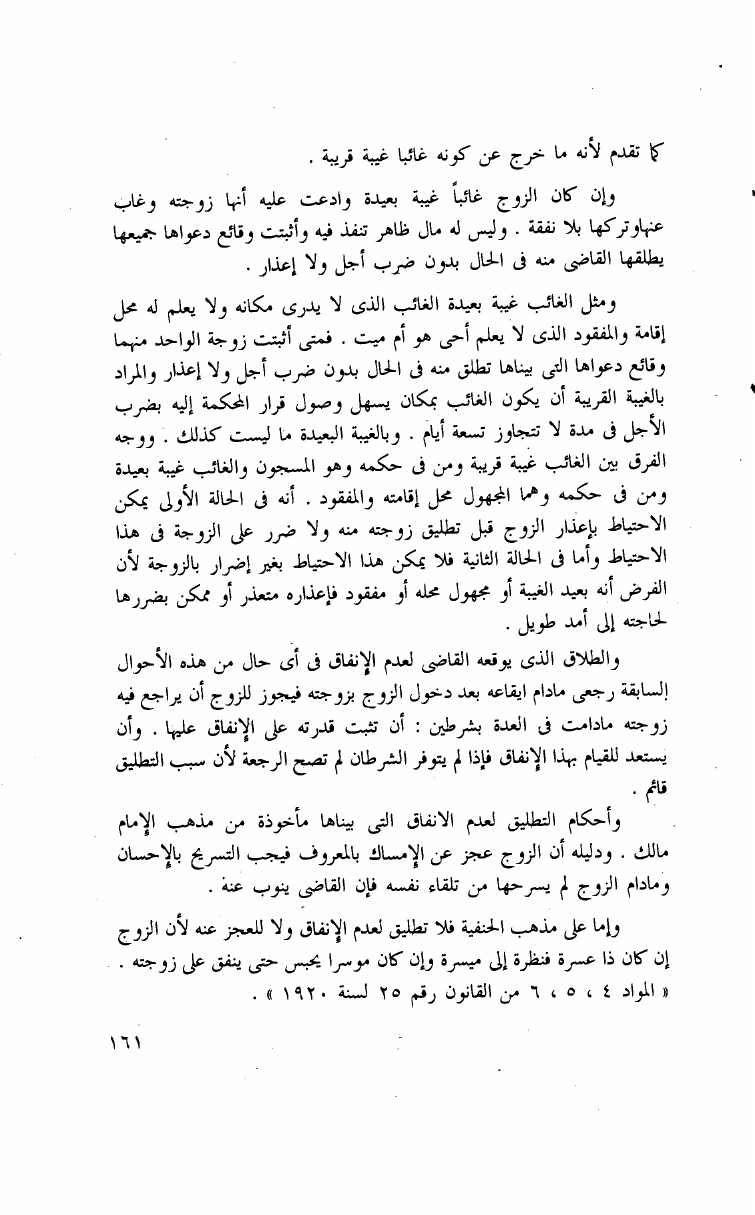 كما تقدم لأنه ما خرج عن كونه غائبا غيبة قريبة .
وإن كان الزوج غائباً غيبة بعيدة وادعت عليه أنها زوجته وغاب
عنها وتركها بلا نفقة . وليس له مال ظاهر تنفذ فيه وأثبتت وقائع دعواها جميعها
يطلقها القاضى منه فى الحال بدون ضرب أجل ولا إعذار .
ومثل الغائب غيبة بعيدة الغائب الذى لا يدرى مكانه ولا يعلم له محل
إقامة والمفقود الذى لا يعلم أحى هو أم ميت . فمتى أثبتت زوجة الواحد منهما
وقائع دعواها التى بيناها تطلق منه فى الحال بدون ضرب أجل ولا إعذار والمراد
بالغيبة القريبة أن يكون الغائب بمكان يسهل وصول قرار المحكمة إليه بضرب
الأجل فى مدة لا تتجاوز تسعة أيام . وبالغيبة البعيدة ما ليست كذلك . ووجه
الفرق بين الغائب غيبة قريبة ومن فى حكمه وهو المسجون والغائب غيبة بعيدة
ومن فى حكمه وهما المجهول محل إقامته والمفقود . أنه فى الحالة الأولى يمكن
الاحتياط بإعذار الزوج قبل تطليق زوجته منه ولا ضرر على الزوجة فى هذا
الاحتياط وأما فى الحالة الثانية فلا يمكن هذا الاحتياط بغير إضرار بالزوجة لأن
الفرض أنه بعيد الغيبة أو مجهول محله أو مفقود فإعذاره متعذر أو ممكن بضررها
لحاجته إلى أمد طويل .
والطلاق الذى يوقعه القاضى لعدم الإنفاق فى أى حال من هذه الأحوال
السابقة رجعى مادام ايقاعه بعد دخول الزوج بزوجته فيجوز للزوج أن يراجع فيه
زوجته مادامت فى العدة بشرطين : أن تثبت قدرته على الإنفاق عليها . وأن
يستعد للقيام بهذا الإنفاق فإذا لم يتوفر الشرطان لم تصح الرجعة لأن سبب التطليق
قائم .
وأحكام التطليق لعدم الانفاق التى بيناها مأخوذة من مذهب الإمام
مالك . ودليله أن الزوج عجز عن الإمساك بالمعروف فيجب التسريح بالإحسان
ومادام الزوج لم يسرحها من تلقاء نفسه فإن القاضى ينوب عنه .
وإما على مذهب الحنفية فلا تطليق لعدم الإنفاق ولا للعجز عنه لأن الزوج
إن كان ذا عسرة فنظرة إلى ميسرة وإن كان موسرا يحبس حتى ينفق على زوجته .
« المواد ٤ ، ٥ ، ٦ من القانون رقم ٢٥ لسنة ١٩٢٠ » .
١٦١